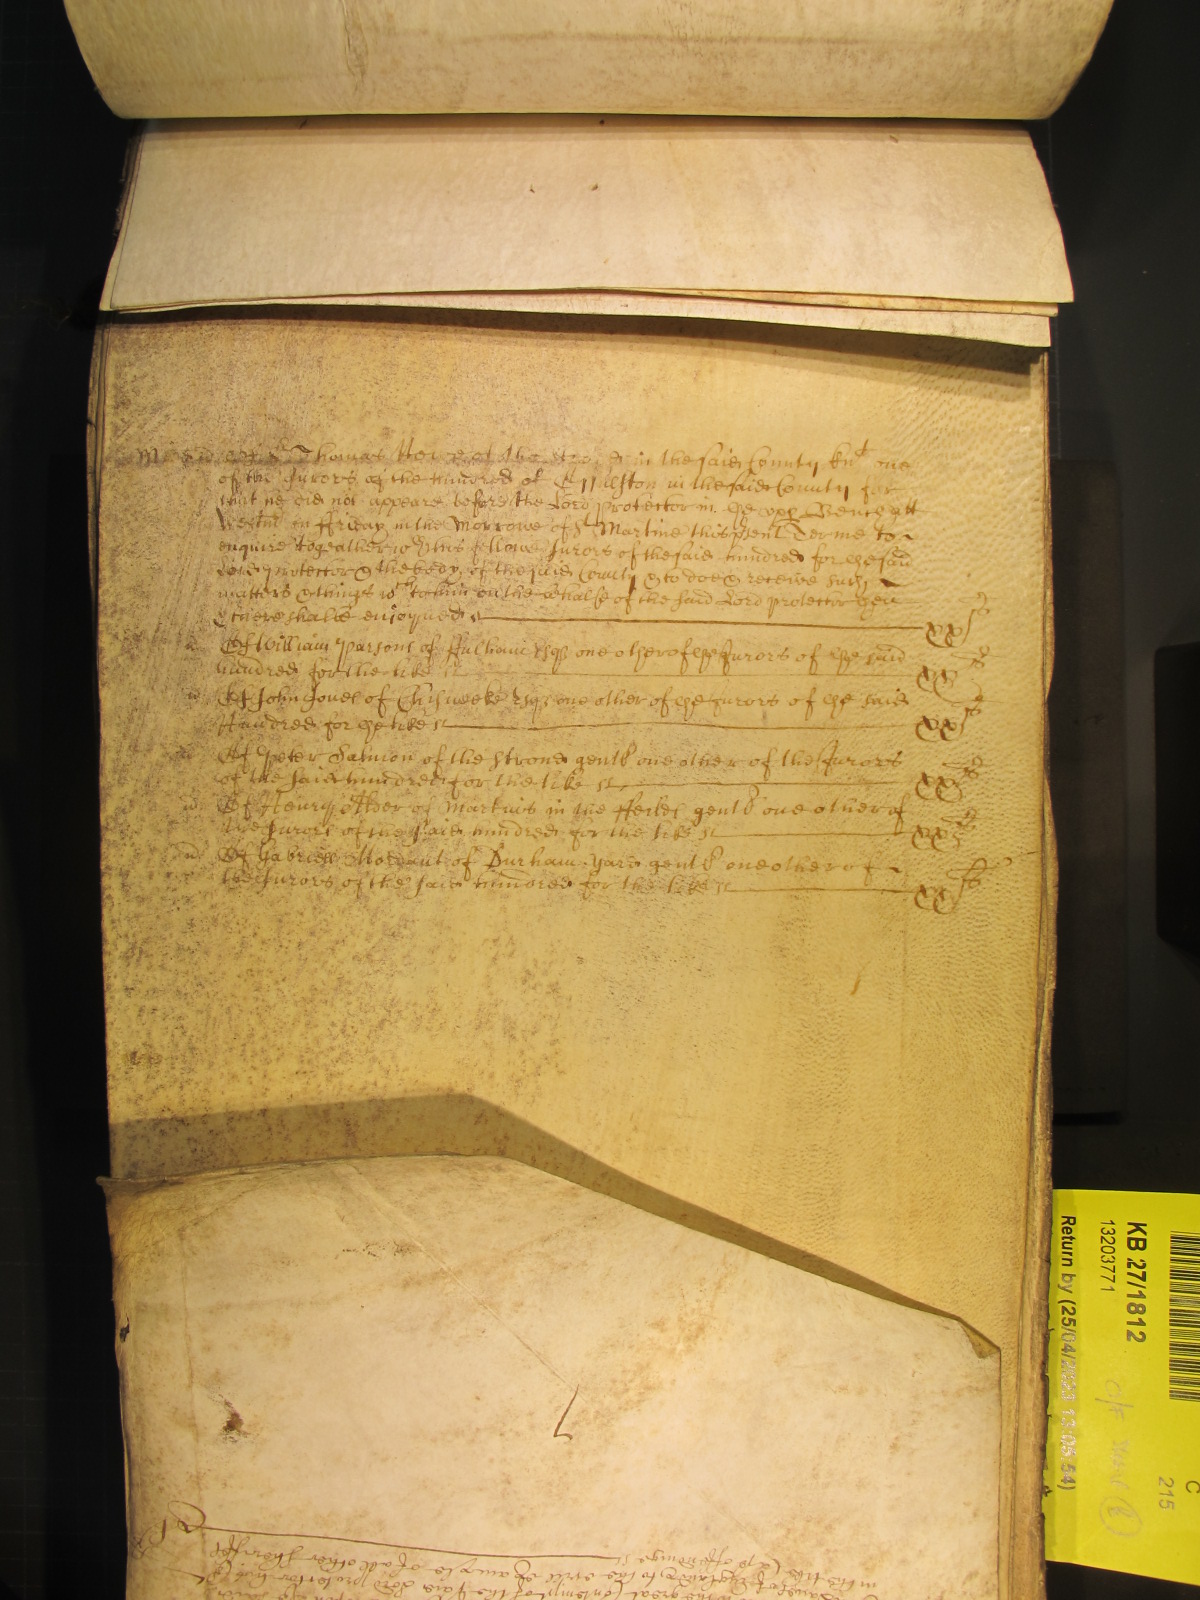 Of Sr Thomas in the said County knt one
of the Jurors of the hundred of Ossulston in the said County for
that he did not appeare before the Lord Protector in the upp Bench att
Westm on ffriday in the Morrowe of St Martine this psent Terme to
enquire togeather wth his fellowe Jurors of the said hundred for the said
Lord Protector & the body of the said County & to doe & receive such
matters & things wch to him on the behalfe of the said Lord Protector then
& there shalbe enioyned xxs
Of William Parsons of ffulham Esqr one other of the Jurors of the said
hundred for the like xxs
Of John Jones of Chisweeke Esqr one other of the Jurors of the said
Hundred for the like xxs
Of Peter Salmon of the Strond gent one other of the Jurors
of the said hundred for the like xxs
Of Henry of Martins in the ffeilds gent one other of
the Jurors of the said hundred for the like xxs
Of Gabriell of Durham Yard gent one other of
the Jurors of the said hundred for the like xxs
KB 27/1812
13203771
Return by (25/04/2023 13:05:54)
C
215